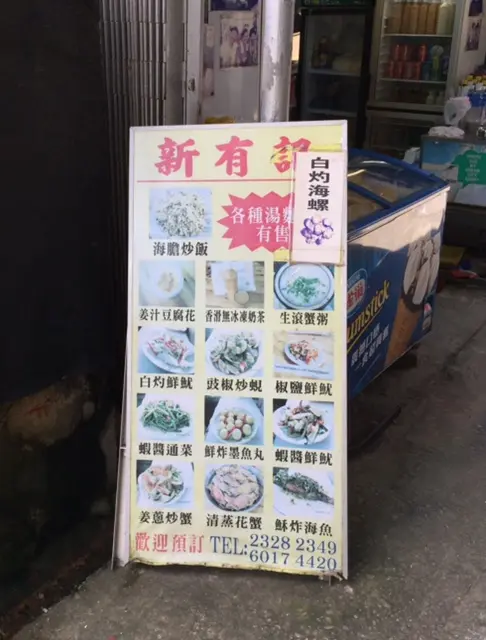 新有記
白灼海螺
各種湯
有售
海膽炒飯
姜汁豆腐花
香滑無冰凍奶茶
生滾蟹粥
白灼鮮魷
豉椒炒蜆
椒鹽鮮魷
蝦醬通菜
鮮炸墨魚丸
蝦醬鮮魷
姜蔥炒蟹
清蒸花蟹
酥炸海魚
歡迎預訂 TEL:2328 2349
6017 4420
umstick